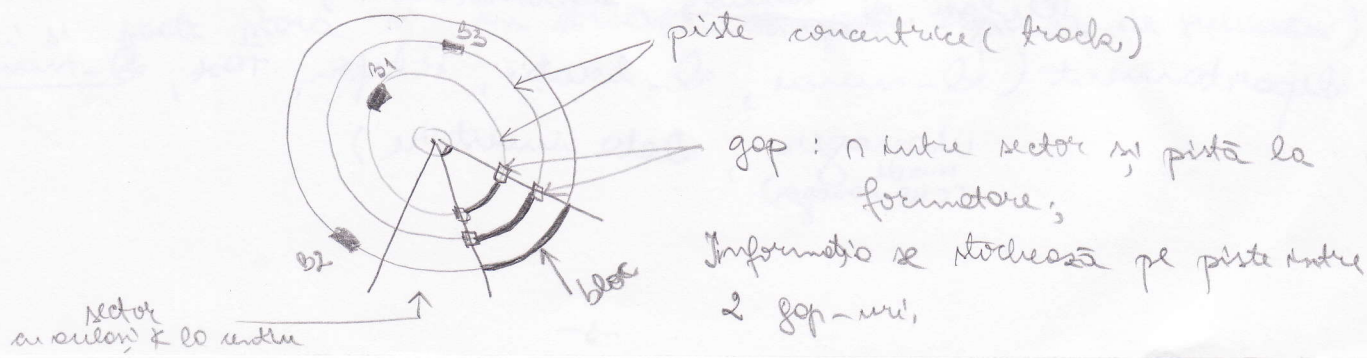 B3
B1
piste concentrice (tracks)
gap : ∩ intre sector și pistă la
formatare;
B2
bloc
Informația se stochează pe piste intre
2 gap-uri.
sector
cu același ∢ la centru